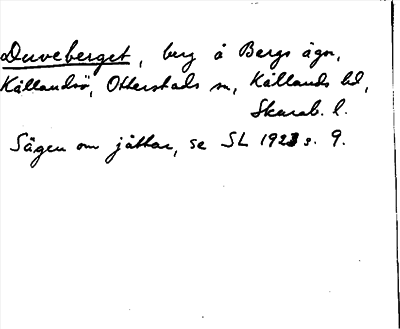 Duveberget, berg å Bergs ägn,
Kållandsö, Otterstads sn, Kållands hd,
Skarab. l.
Sägen om jättar, se SL 1923 s. 9.